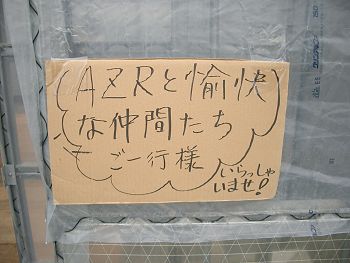 AZRと愉快
な仲間たち
ご一行様
いらっしゃ
いませ!